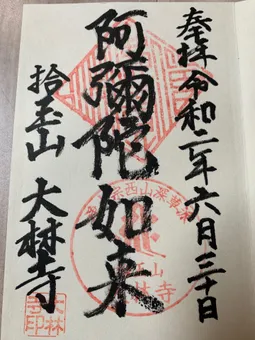 奉拝 令和二年六月三十日
阿彌陀如来
拾玉山 大林寺
大林
寺印